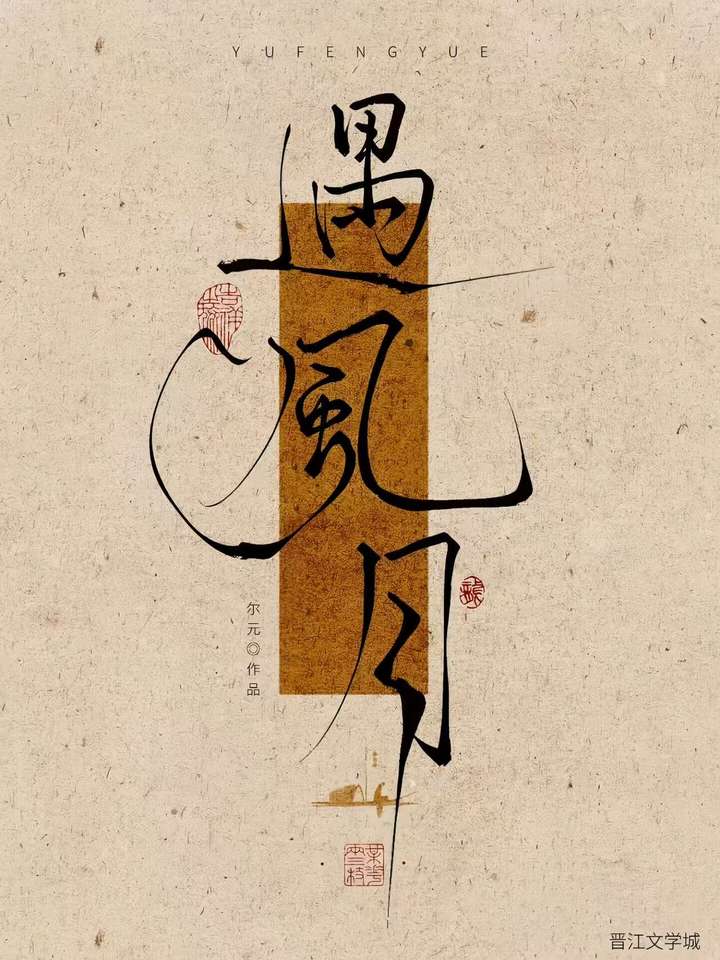 YUFENGYUE
遇風月
尔元◎作品
晋江文学城